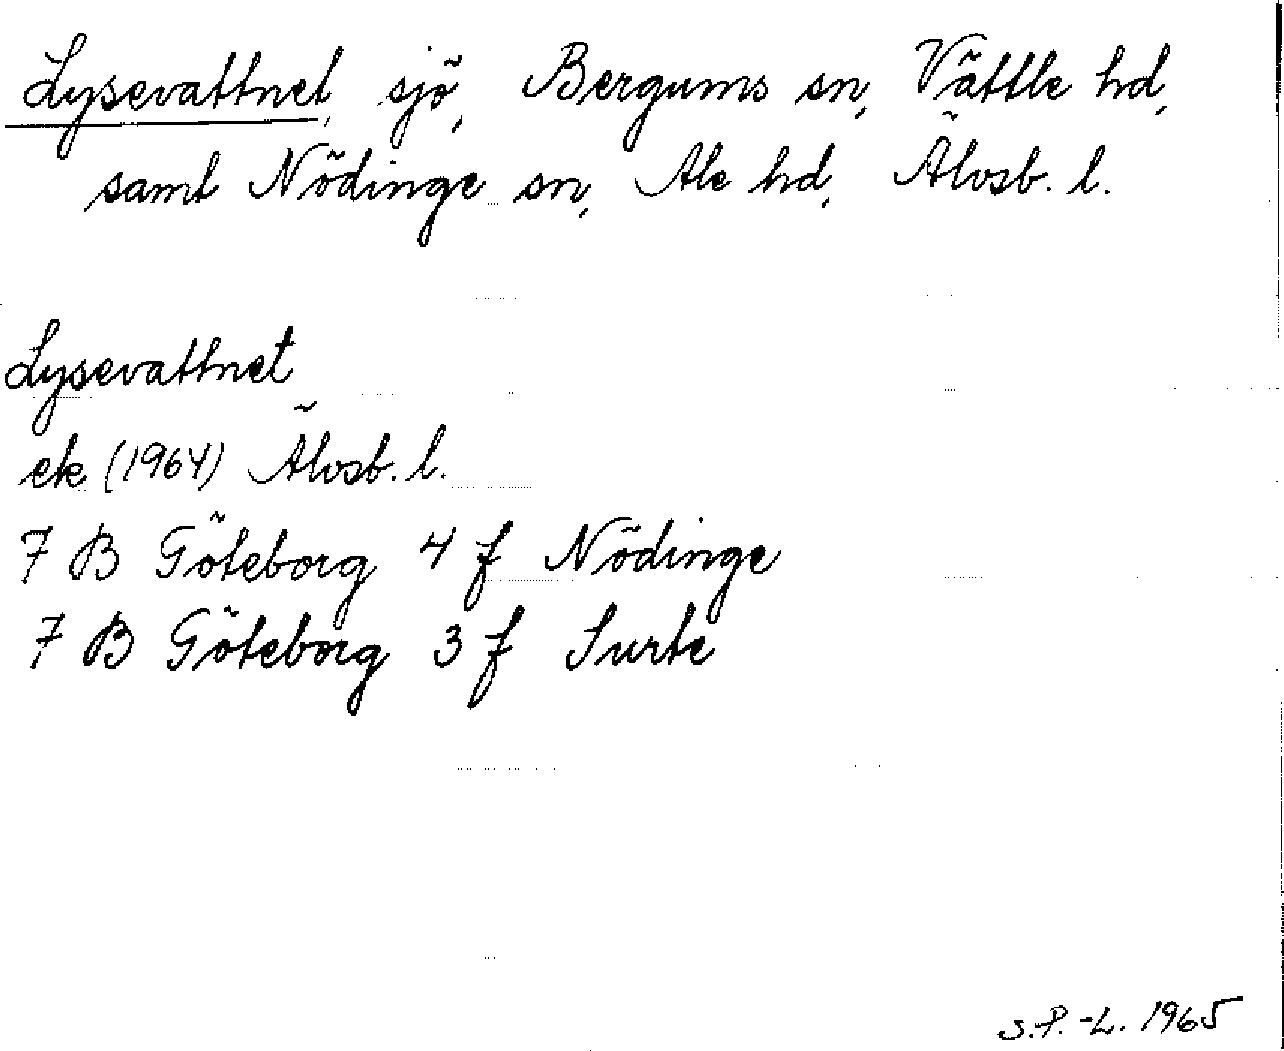 Lysevattnet, sjö, Bergums sn, Vättle hd,
samt Nödinge sn, Ale hd, Älvsb. l.
Lysevattnet
ek (1964) Älvsb. l.
7 B Göteborg 4 f Nödinge
7 B Göteborg 3 f Surte
S.P.-L. 1965